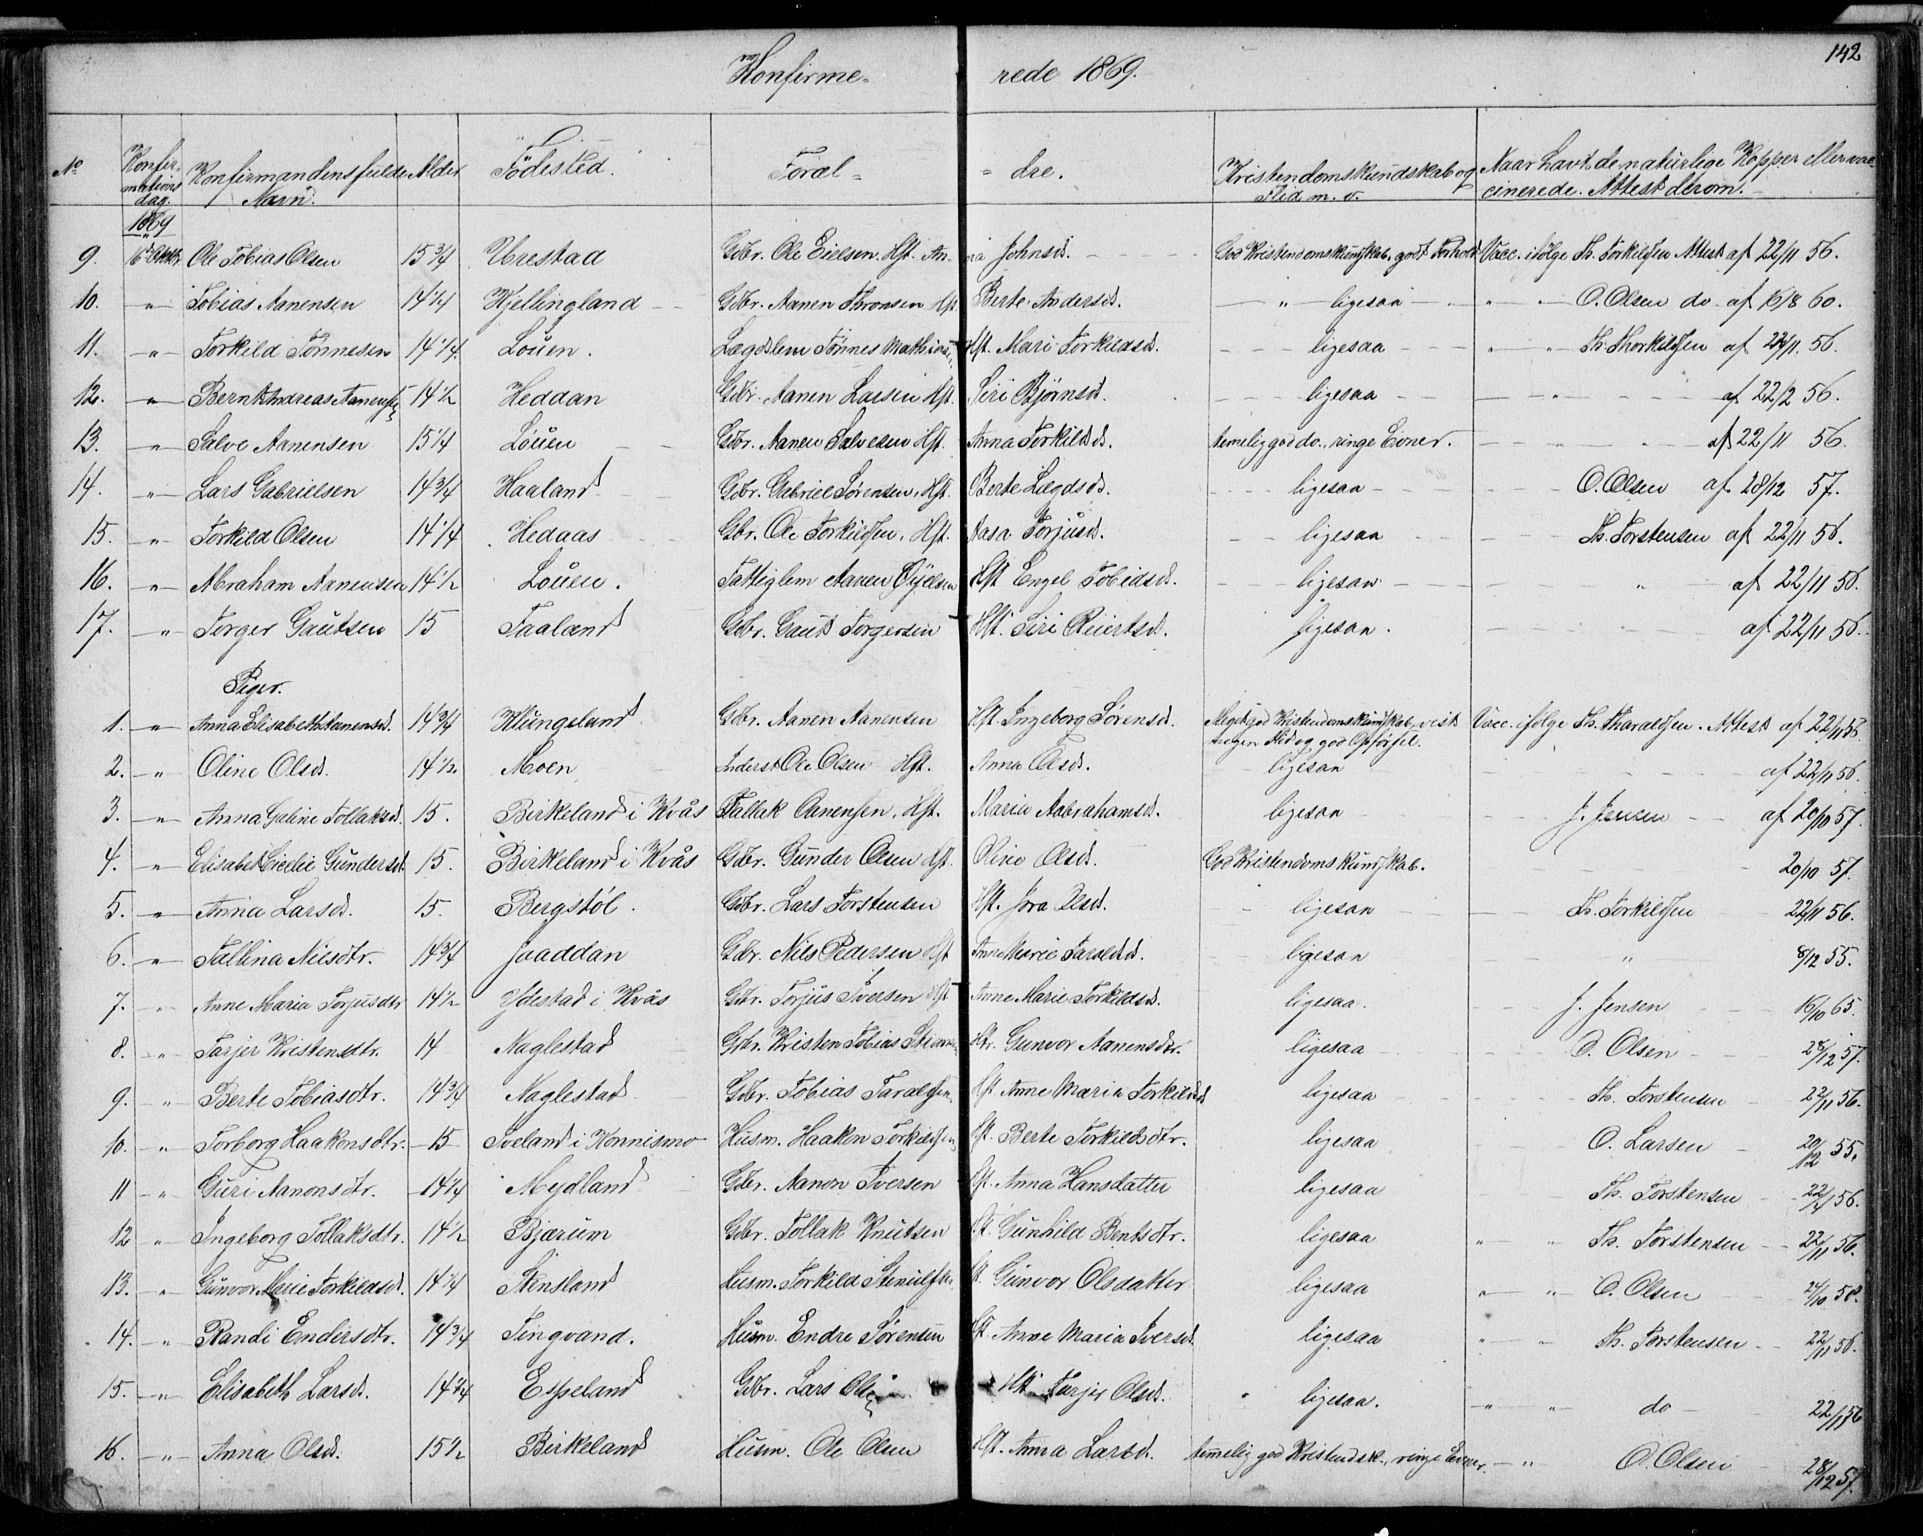 142
Konfirme= rede 1869.
No Konfirmations dag. Konfirmandens fulde Navn. Alder Födested. Foræl= =dre. Kristendomskundskab og Flid m. v. Naar havt de naturlige Kopper eller vaccinerede. Attest derom.
1869
9. 16de Oktbr Ole Tobias Olsen 15 3/4 Ubrestad Gdbr. Ole Eielsen. Hst. Anna Johnsd. God Kristendomskundskab, godt Forhold Vacc. ifölge Th. Torkildsen Attest af 22/11 56.
10. " Tobias Aanensen 14 1/4 Kjellingland Gdbr. Aanen Thronsen Hst. Berte Andersd. " ligesaa " " O. Olsen do. af 16/8 60.
11. " Torkild Tönnesen 14 1/4 Louen. Lægdslem Tönnes Mathias Hst. Mari Torkildsd. ligesaa " " Th. Thorkildsen af 22/11. 56.
12. " Bernt Andreas Aanensen 14 1/2 Heddan Gdbr. Aanen Larsen Hst. Siri Björnsd. ligesaa " af 22/2 56.
13. " Salve Aanensen 15 1/4 Louen Gdbr. Aanen Salvesen Hst. Anna Torkildsd. temelig god do., ringe Evner. af 22/11 56.
14. " Lars Gabrielsen 14 3/4 Haaland Gdbr. Gabriel Sörensen, Hst. Berte Lægdsd. ligesaa O. Olsen af 28/12 57.
15. " Torkild Olsen 14 1/4 Hedaas Gbr. Ole Torkildsen, Hst. Aasa Torjusd. ligesaa Th. Torstensen af 22/11 56.
16. " Abraham Aanensen 14 1/2 Louen. Fattiglem Aanen Hst Engel Tobiasd. ligesaa " af 22/11 56.
17. " Torger Gautsen 15 Faaland Gdbr. Gaut Torgersen Hst. Siri Reiertsd. ligesaa. af 22/11 56.
Piger.
1. " Anna Elisabeth Aanensd. 14 3/4 Klungeland Gdbr. Aanen Aanensen Hst. Ingeborg Sörensd. Meget god Kristendomskundskab, vist megen Flid og god Opförsel. Vacc. ifölge Th. Tharaldsen. Attest af 22/11 56.
2. " Oline Olsd. 14 1/2 Moen Inderst Ole Olsen Hst. Anna Olsd. ligesaa af 22/11 56.
3. " Anna Galine Tollaksd. 15. Birkeland i Kvås Tallak Aanensen, Hst. Maria Aabrahamsd. ligesaa J. Jensen af 20/10 57.
4. " Elisabet Cicelie Gundersd. 15. Birkeland i Kvås Gdbr. Gunder Olsen Hst. Oline Olsd. God Kristendomskundskab. 20/10 57.
5. " Anna Larsd. 15. Bergstöl. Gdbr. Lars Torstensen Hst. Jora Olsd. ligesaa Th. Torkildsen 22/11 56.
6. " Tallina Nilsdtr. 14 3/4 Jaaddan Gdbr. Nils Pedersen Hst Anne Marie Taraldsd. ligesaa " 8/12 55.
7. " Anne Maria Torjusdtr 14 1/2 Ydestad i Kvås Gdbr. Torjus Iversen Hst Anne Marie Torkildsd. ligesaa. J. Jensen 16/10 65.
8. " Tarjer Kristensdtr. 14 Naglestad Gdbr. Kristen Tobias Hst. Gunvor Aanensdtr. ligesaa O. Olsen 28/12 57.
9. " Berte Tobiasdtr. 14 3/4 Naglestad Gdbr. Tobias Taraldsen Hst. Anne Maria Torkildsd ligesaa Th. Torstensen 22/11 56.
10. " Torborg Haakensdtr. 15 Sveland i Konnismo Husm. Haaken Torkildsen Hst. Berte Torkildsdtr. ligesaa O. Larsen 20/12 55.
11 " Guri Aanonsdtr. 14 1/4 Mydland Gdbr. Aanon Iversen Hst. Anna Hansdatter ligesaa Th. Torstensen 22/4 56.
12 " Ingeborg Tollaksdtr. 14 1/2 Bjærum Gdbr. Tollak Knutsen Hst. Gunhild Bentsdtr. ligesaa " " Th. Torstensen 22/11 56.
13. " Gunvor Marie Torkildsd. 14 1/4 Stensland Husm. Torkild Stenulfsen Hst. Gunvor Olsdatter ligesaa " " O. Olsen 24/10 58.
14. " Randi Endersdtr. 14 3/4 Tingvand. Husm. Endre Sörensen Hst. Anne Maria Iversd. ligesaa " " Th. Torstensen 22/11 56.
15. " Elisabeth Larsd. 14 3/4 Espeland Gdbr. Lars Olsen Hst. Tarjer Olsd. ligesaa. " " do 22/11 56
16. " Anna Olsd. 15 1/2 Birkeland Husm. Ole Olsen Hst. Anna Larsd. temelig god Kristendsk., ringe Evner. " O. Olsen 28/12 57.